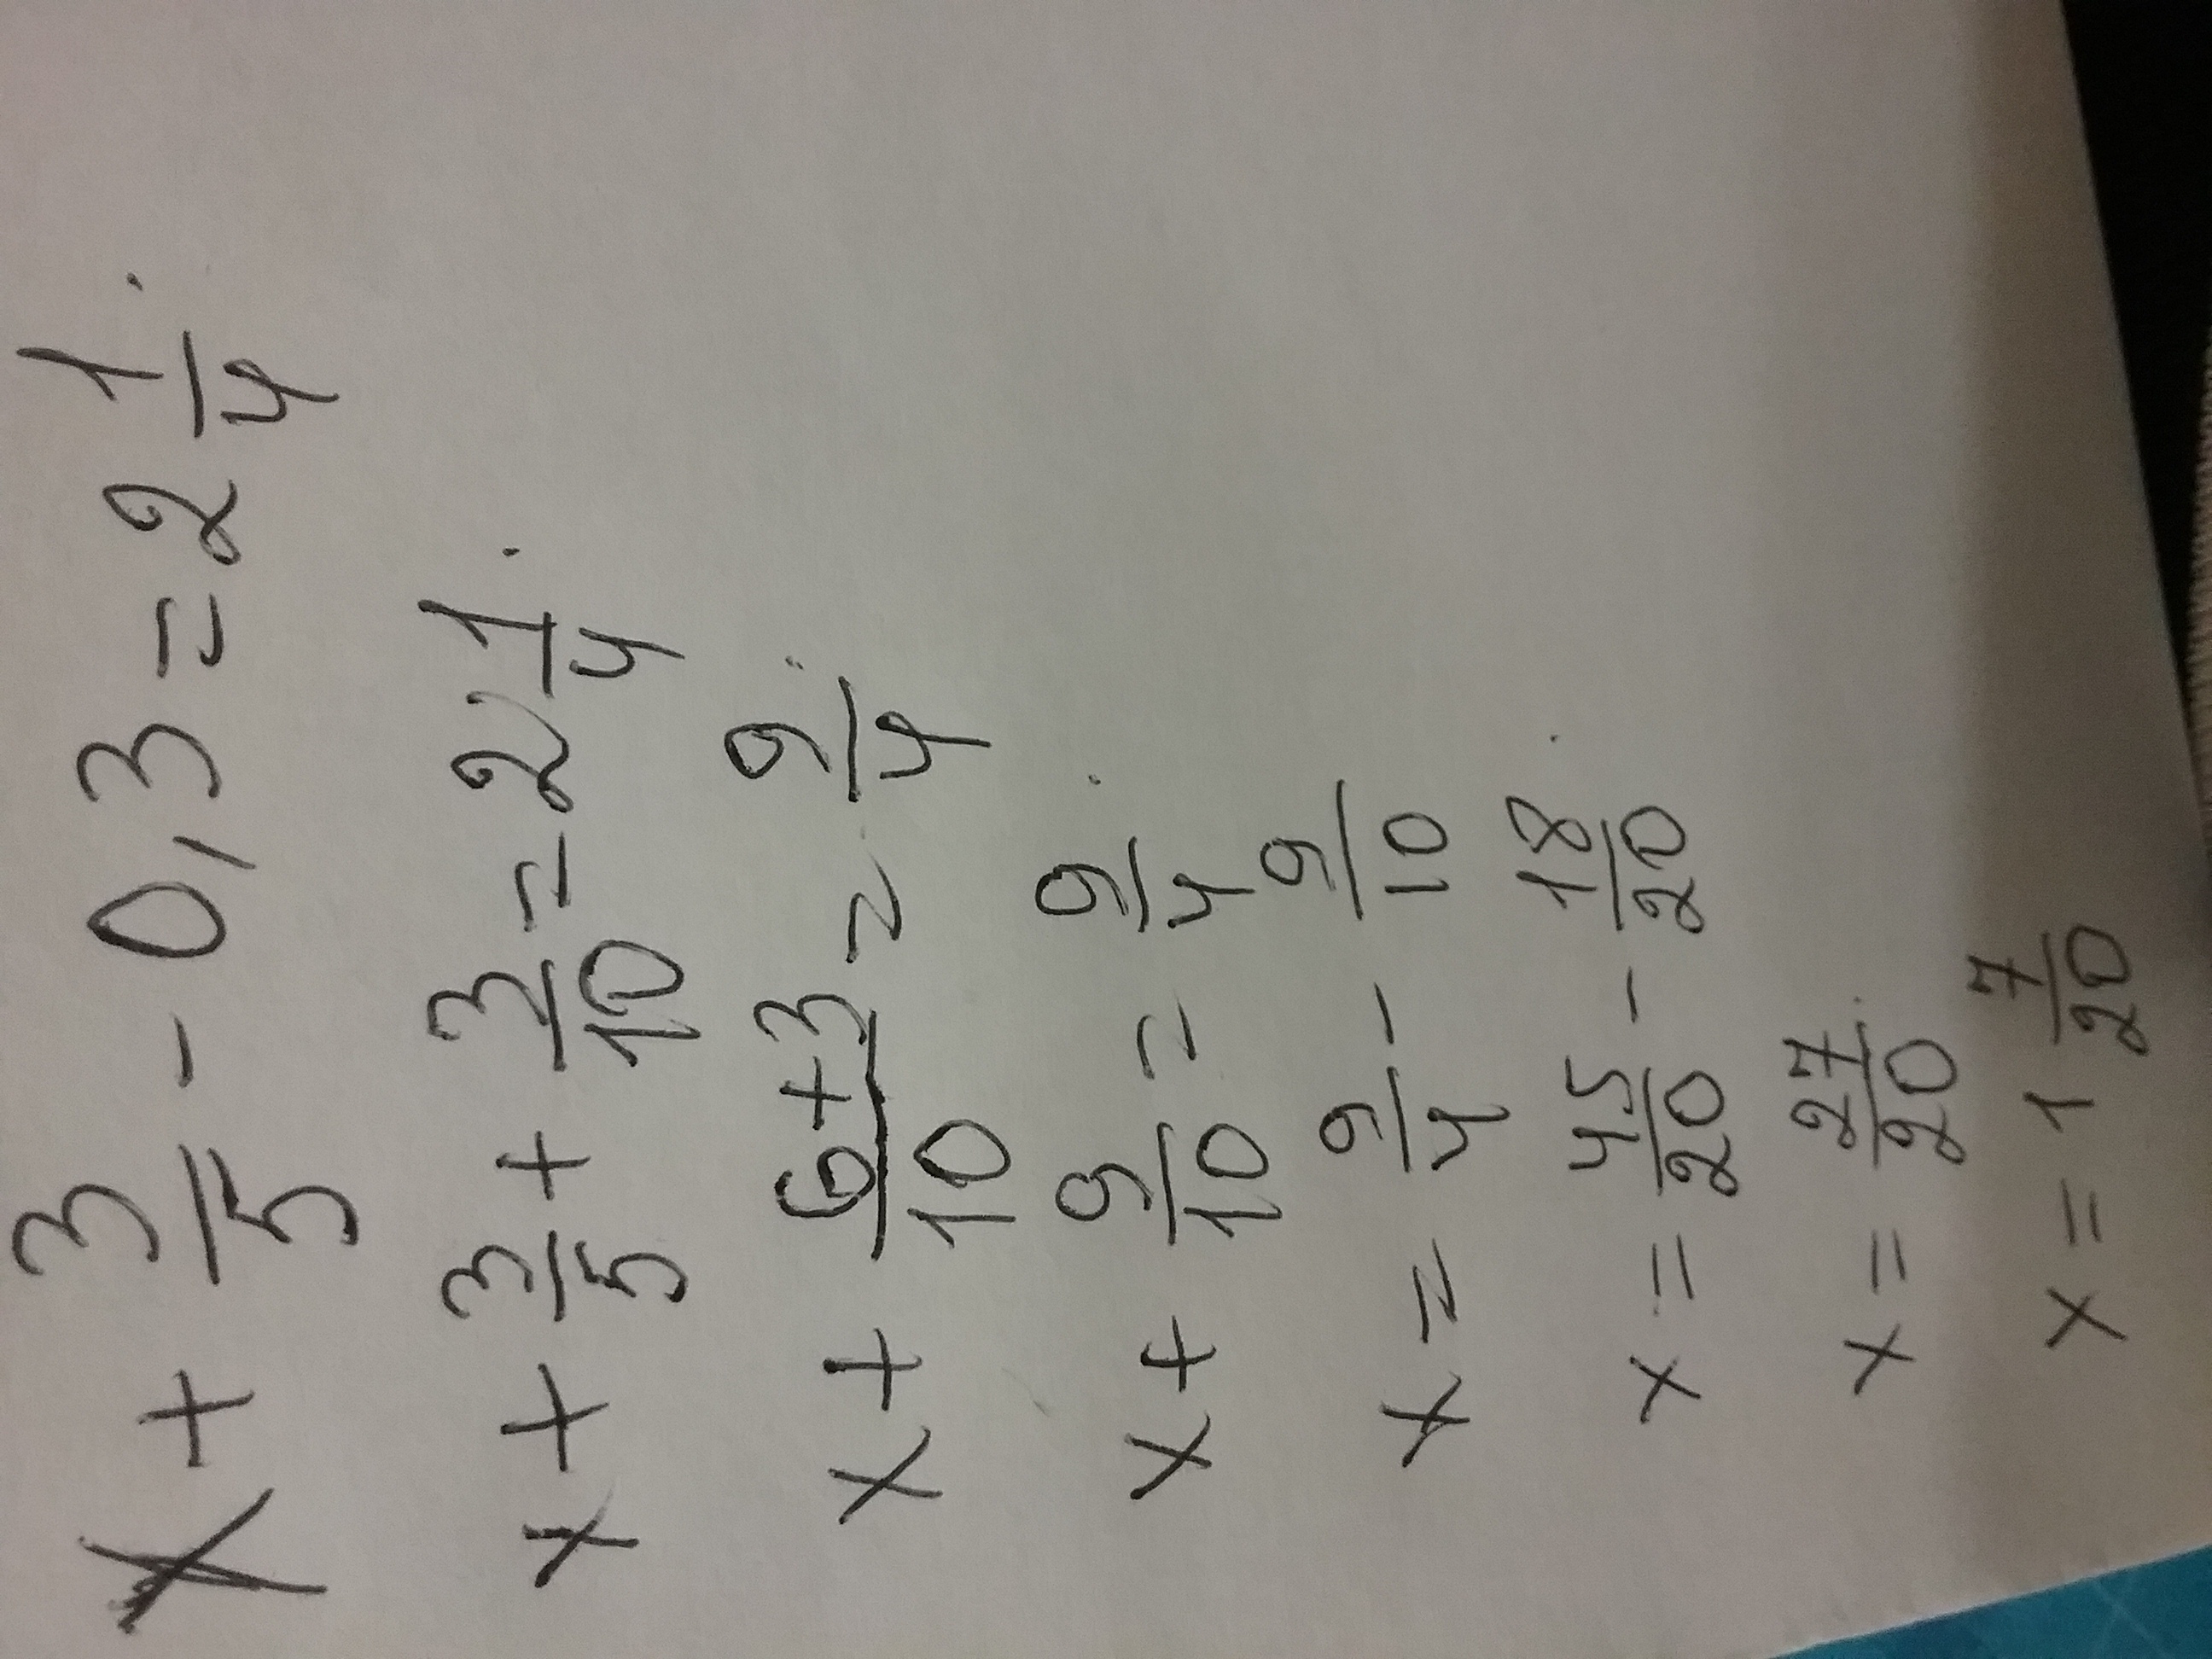 x + 3/5 - 0,3 = 2 1/4.
x + 3/5 + 3/10 = 2 1/4.
x + (6+3)/10 = 9/4.
x + 9/10 = 9/4.
x = 9/4 - 9/10
x = 45/20 - 18/20.
x = 27/20.
x = 1 7/20